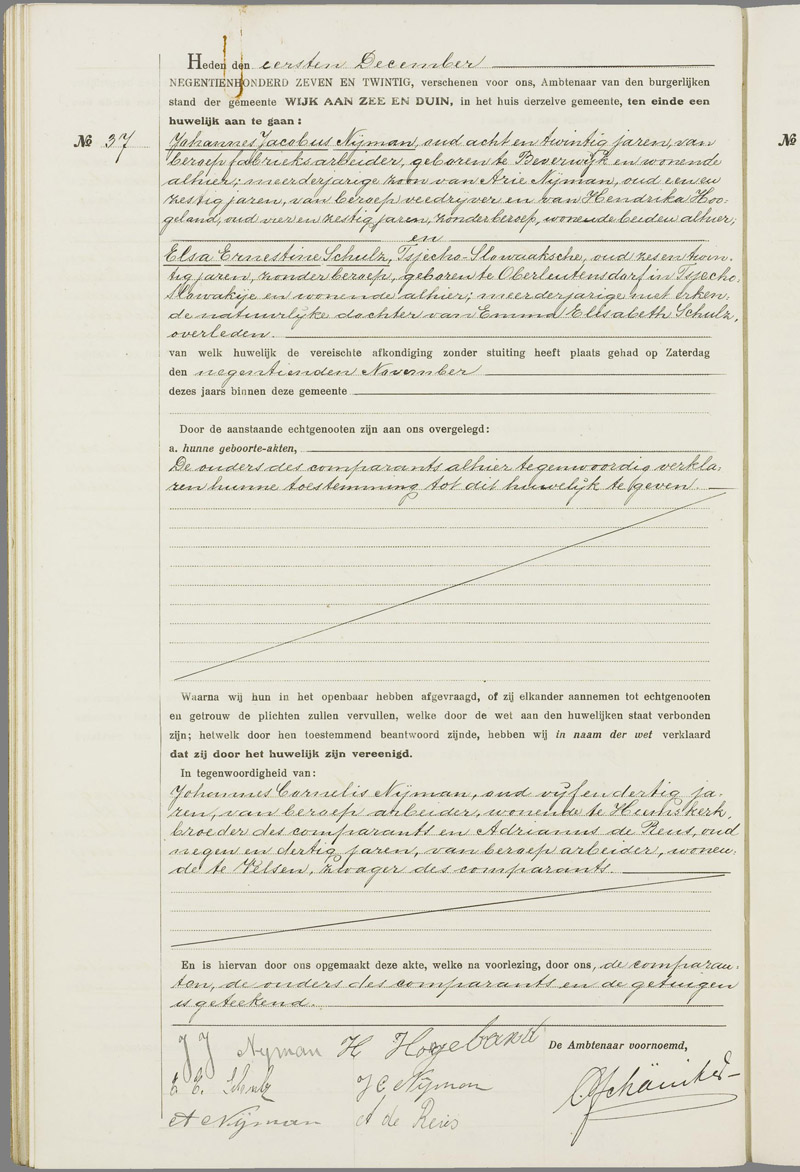 Heden den eersten December
NEGENTIENHONDERD ZEVEN EN TWINTIG, verschenen voor ons, Ambtenaar van den burgerlijken
stand der gemeente WIJK AAN ZEE EN DUIN, in het huis derzelve gemeente, ten einde een
huwelijk aan te gaan:
No 37
Johannes Jacobus Nijman, oud acht en twintig jaren, van
beroep fabrieksarbeider, geboren te Beverwijk en wonende
alhier; meerderjarige zoon van Arie Nijman, oud een en
zestig jaren, van beroep veedrijver en van Hendrika Hoo-
geland, oud vier en zestig jaren, zonder beroep, wonende beiden alhier;
en
Elsa Ernestine Schulz, Tsjecho-Slowaaksche, oud zes en twin-
tig jaren, zonder beroep, geboren te Oberleutensdorf in Tsjecho-
Slowakije en wonende alhier; meerderjarige niet erken-
de natuurlijke dochter van Emma Elisabeth Schulz,
overleden.
van welk huwelijk de vereischte afkondiging zonder stuiting heeft plaats gehad op Zaterdag
den negentienden November
dezes jaars binnen deze gemeente
Door de aanstaande echtgenooten zijn aan ons overgelegd:
a. hunne geboorte-akten,
De ouders des comparants alhier tegenwoordig verkla-
ren hunne toestemming tot dit huwelijk te geven.
Waarna wij hun in het openbaar hebben afgevraagd, of zij elkander aannemen tot echtgenooten
en getrouw de plichten zullen vervullen, welke door de wet aan den huwelijken staat verbonden
zijn; hetwelk door hen toestemmend beantwoord zijnde, hebben wij in naam der wet verklaard
dat zij door het huwelijk zijn vereenigd.
In tegenwoordigheid van:
Johannes Cornelis Nijman, oud vijf en dertig ja-
ren, van beroep arbeider, wonende te Heemskerk,
broeder des comparants en Adrianus de Reus, oud
negen en dertig jaren, van beroep arbeider, wonen-
de te Velsen, zwager des comparants.
En is hiervan door ons opgemaakt deze akte, welke na voorlezing, door ons, de comparan-
ten, de ouders des comparants en de getuigen
is geteekend.
J J Nyman H Hogeband De Ambtenaar voornoemd,
E. E. Schulz J C Nijman
A Nijman A de Reus
No